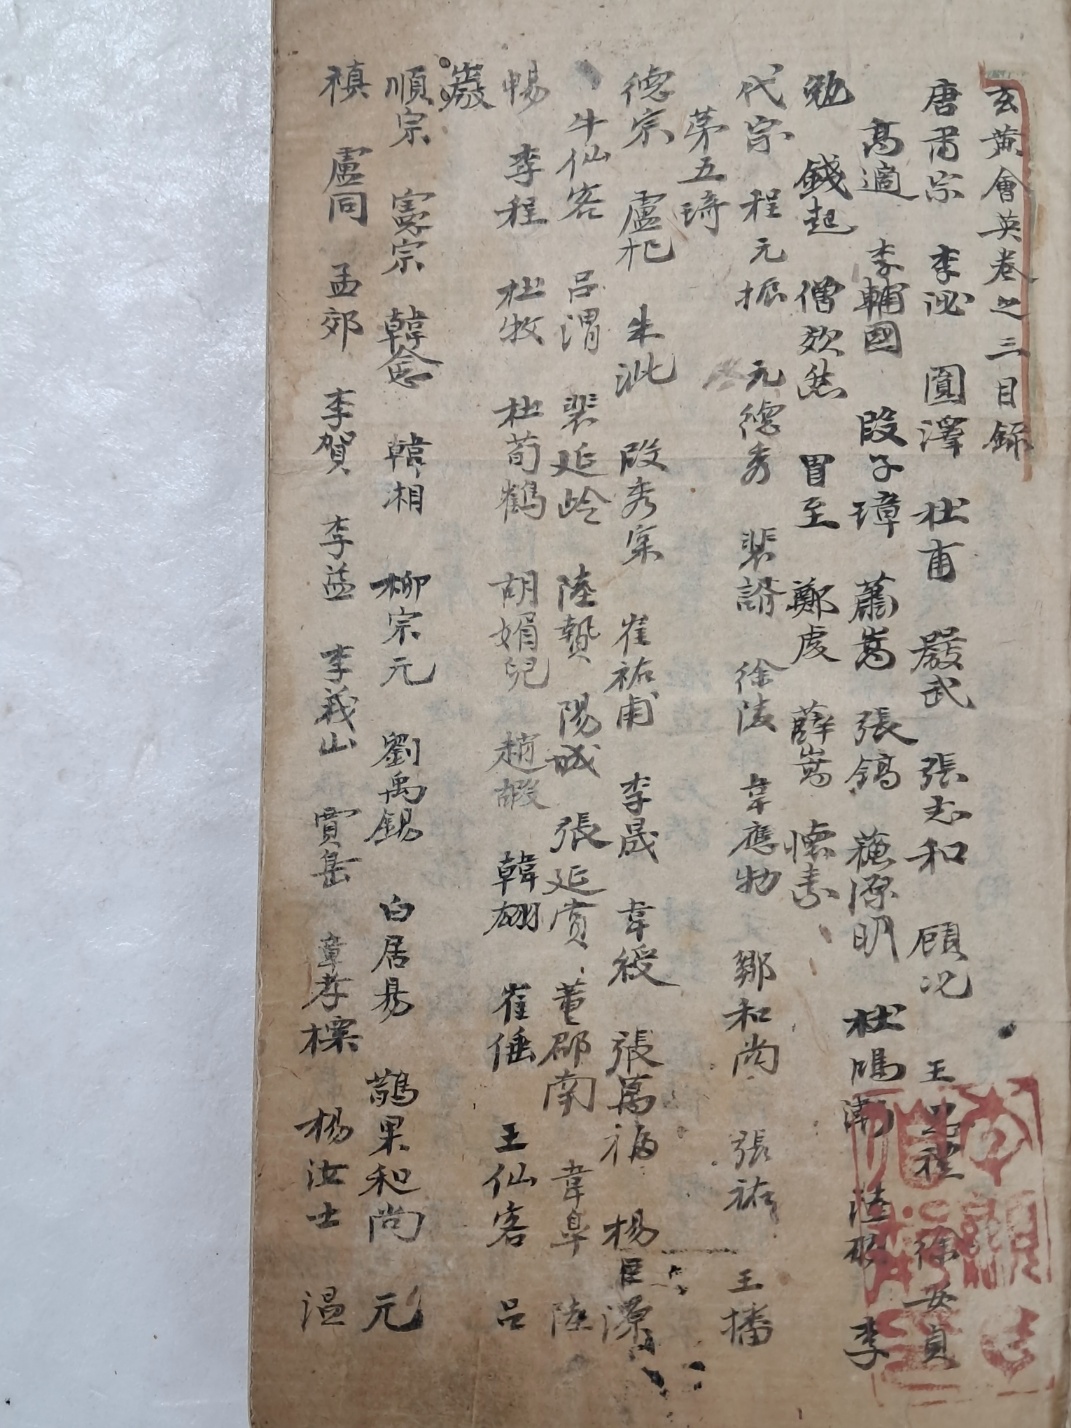 玄黃會英卷之三目錄
唐肅宗 李泌 圓澤 杜甫 嚴武 張志和 顧况 王 徐安貞
高適 李輔國 段子璋 蕭嵩 張鎬 蘓源明 杜鴻漸 陸 李
勉 錢起 僧 冒至 鄭虔 薛嵩 懷素
代宗 程元振 元德秀 裴諝 徐 韋應物 鄒和尚 張祐 王播
苐五琦
德宗 盧杞 朱泚 段秀実 崔祐甫 李晟 韋綬 張萬福 楊
牛仙客 呂渭 裴延岭 陸贄 陽城 張延賞 董郡南 韋臯 陸
暢 李程 杜牧 杜荀鶴 胡媚兒 趙嘏 韓翃 崔倕 王仙客 呂
巖
順宗 憲宗 韓愈 韓湘 柳宗元 劉禹錫 白居易 鵲果和尚 元
禛 盧同 孟郊 李賀 李益 李義山 賈島 章孝標 楊汝士 温